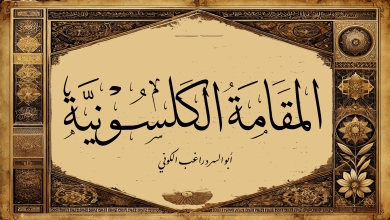 المقامة الكلسونيَّة
أبو السرور راغب الكوني